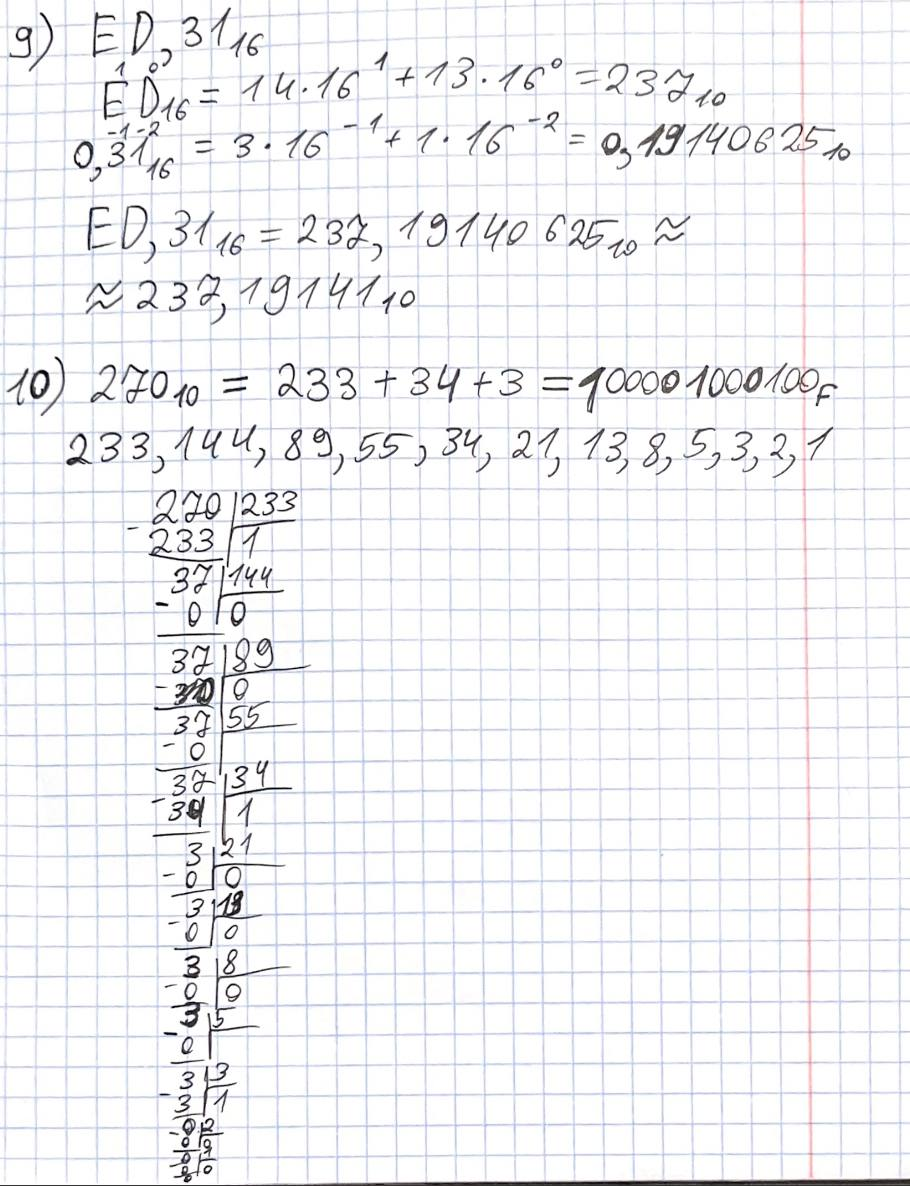 9) ED,31₁₆
1 0
ED₁₆ = 14·16¹ + 13·16⁰ = 237₁₀
-1 -2
0,31₁₆ = 3·16⁻¹ + 1·16⁻² = 0,19140625₁₀
ED,31₁₆ = 237,19140625₁₀ ≈
≈ 237,19141₁₀
10) 270₁₀ = 233 + 34 + 3 = 100001000100F
233, 144, 89, 55, 34, 21, 13, 8, 5, 3, 2, 1
270 | 233
- 233 | 1
37 | 144
- 0 | 0
37 | 89
- 0 | 0
37 | 55
- 0
37 | 34
- 34 | 1
3 | 21
- 0 | 0
3 | 13
- 0 | 0
3 | 8
- 0 | 0
3 | 5
- 0
3 | 3
- 3 | 1
0 | 2
- 0 | 0
0 | 1
- 0 | 0
0